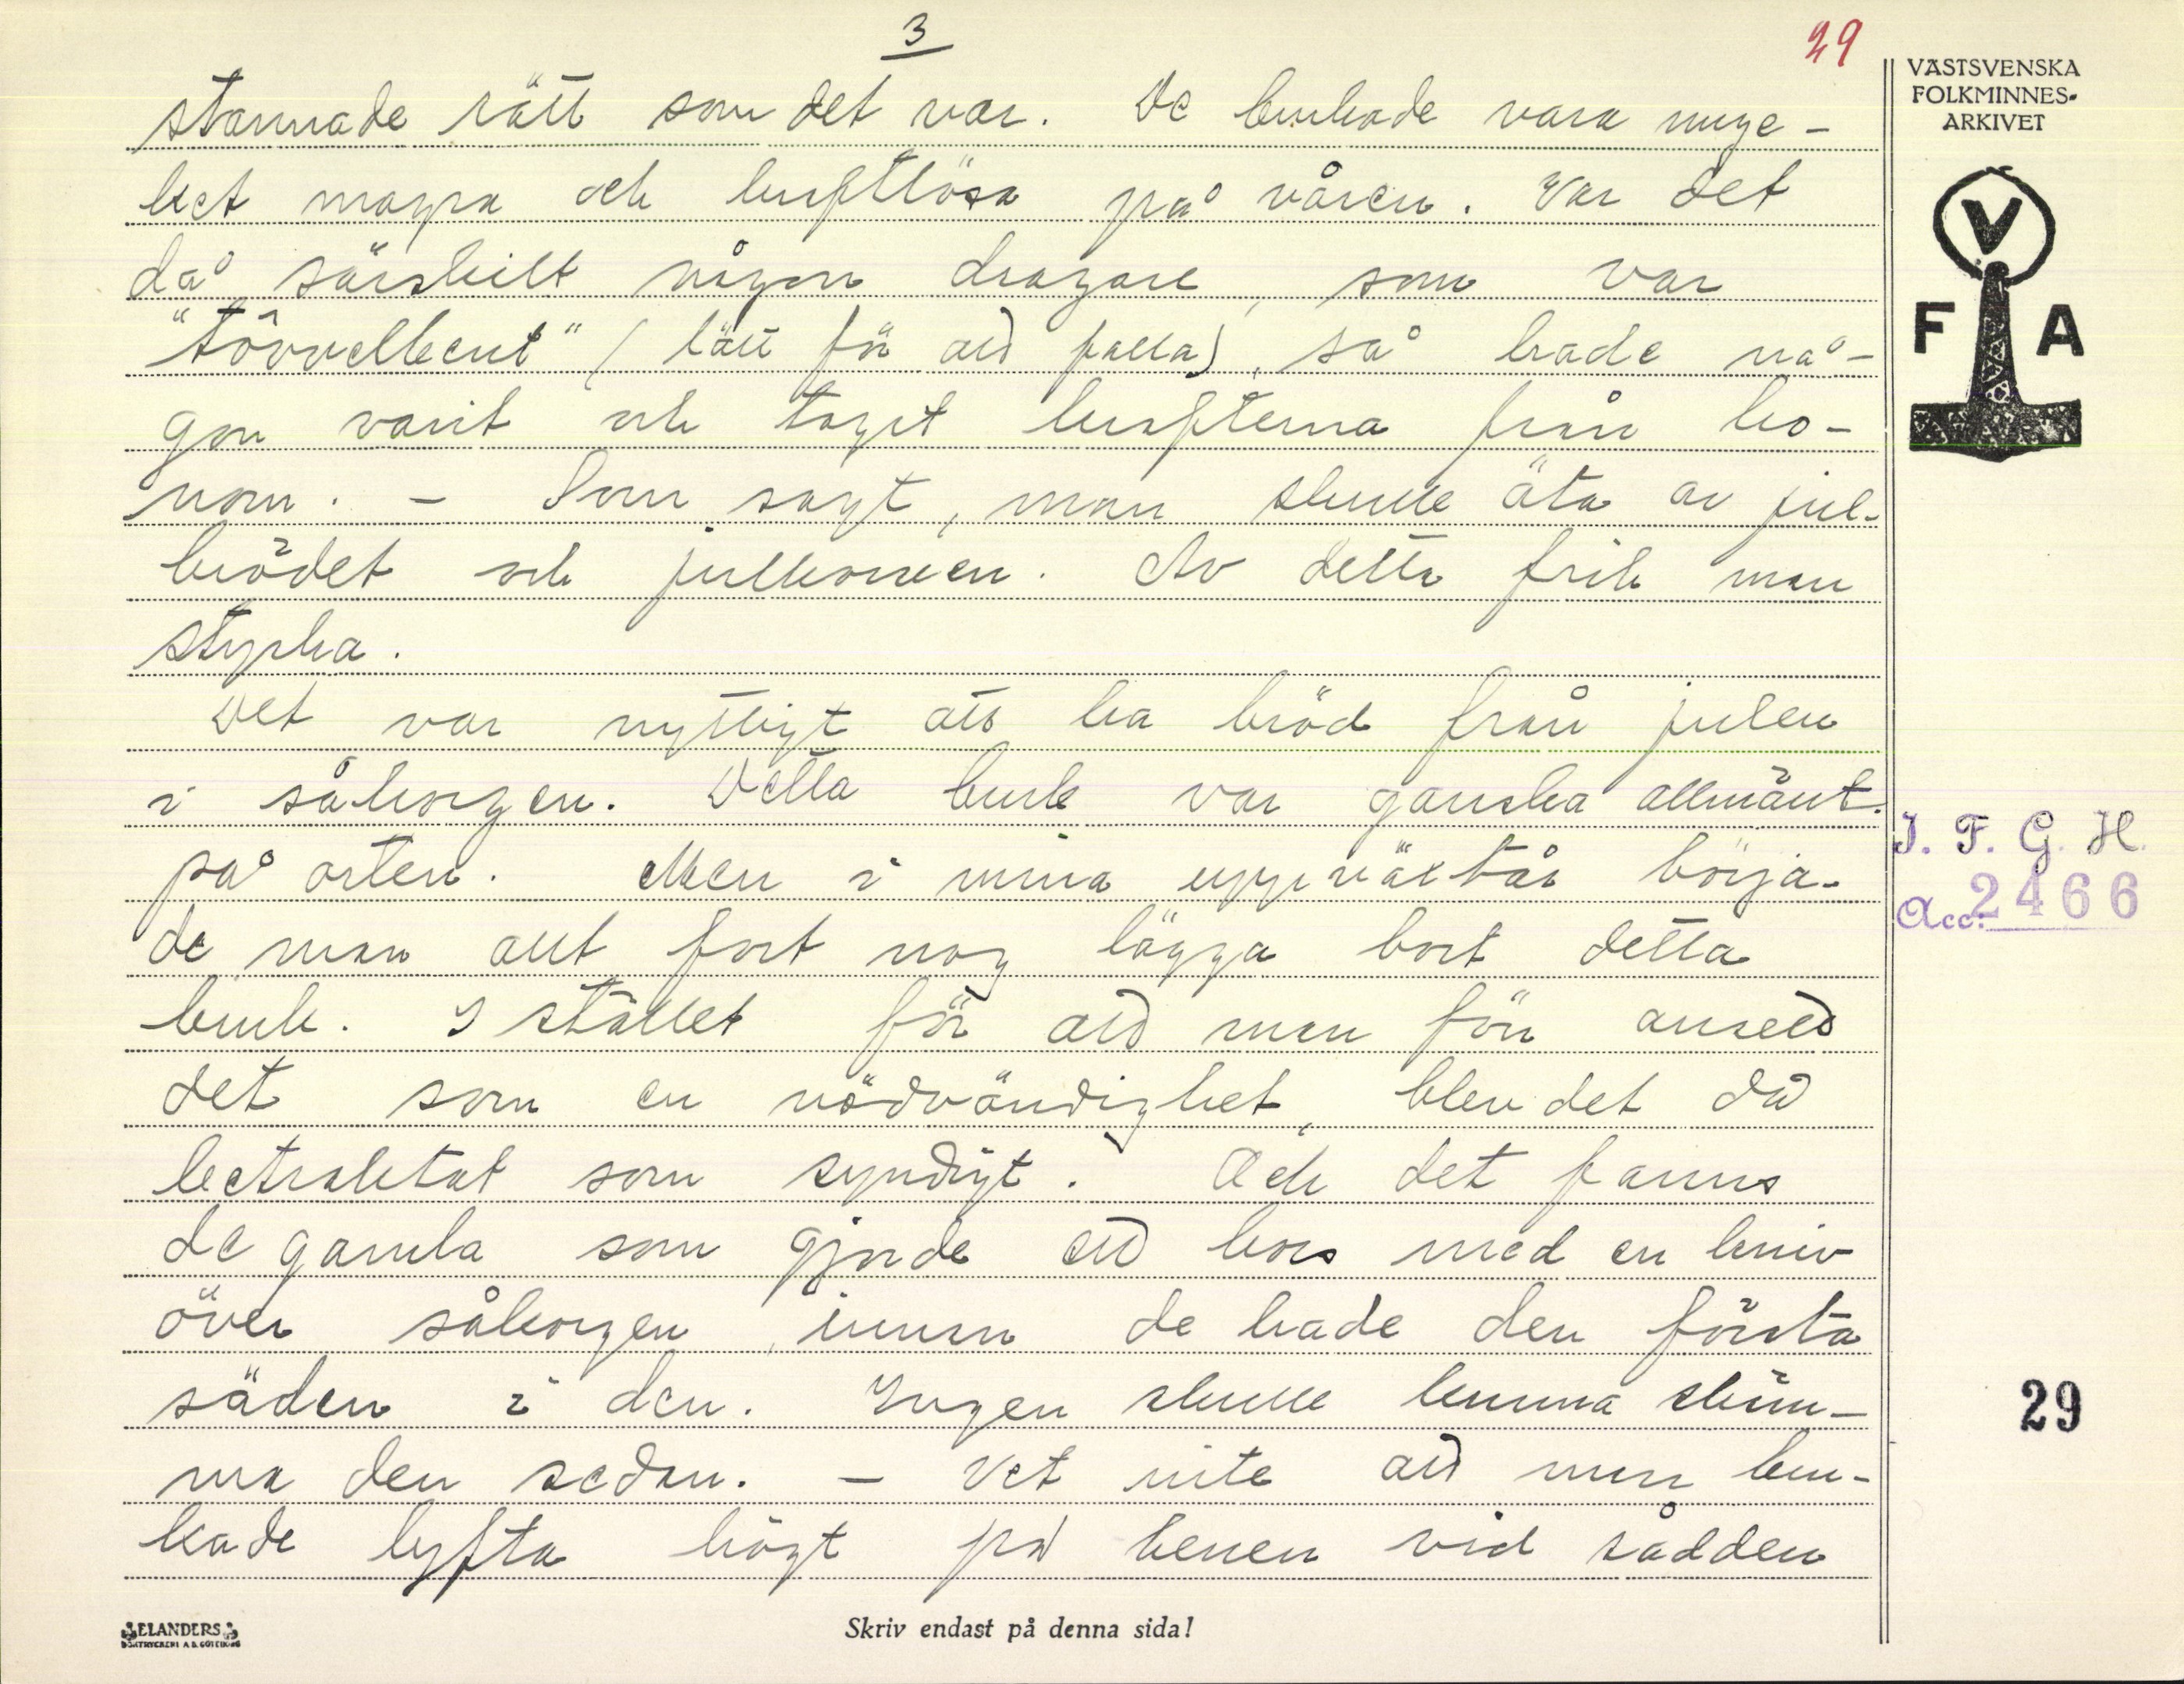 3
29
VÄSTSVENSKA
FOLKMINNES-
ARKIVET
V
F A
stannade rätt som det var. De brukade vara myc-
ket magra och kraftlösa på våren. Var det
då särskilt någon dragare, som var
"tôvvelkent" (lätt för att falla), så hade nå-
gon varit och tagit krafterna från ho-
nom. - Som sagt, man skulle äta av jul-
brödet och julkorven. Av detta fick man
styrka.
Det var nyttigt att ha bröd från julen
i såkorgen. Detta bruk var ganska allmänt
på orten. Men i mina uppväxtår börja-
de man allt fort nog lägga bort detta
bruk. I stället för att man förr ansett
det som en nödvändighet, blev det då
betraktat som syndigt. Och det fanns
de gamla som gjorde ett kors med en kniv
över såkorgen, innan de hade den första
säden i den. Ingen skulle kunna skäm-
ma den sedan. - Vet inte att man bru-
kade lyfta högt på benen vid sådden
I. F. G. H.
Acc. 2466
29
ELANDERS
BOKTRYCKERI A.B. GÖTEBORG
Skriv endast på denna sida!